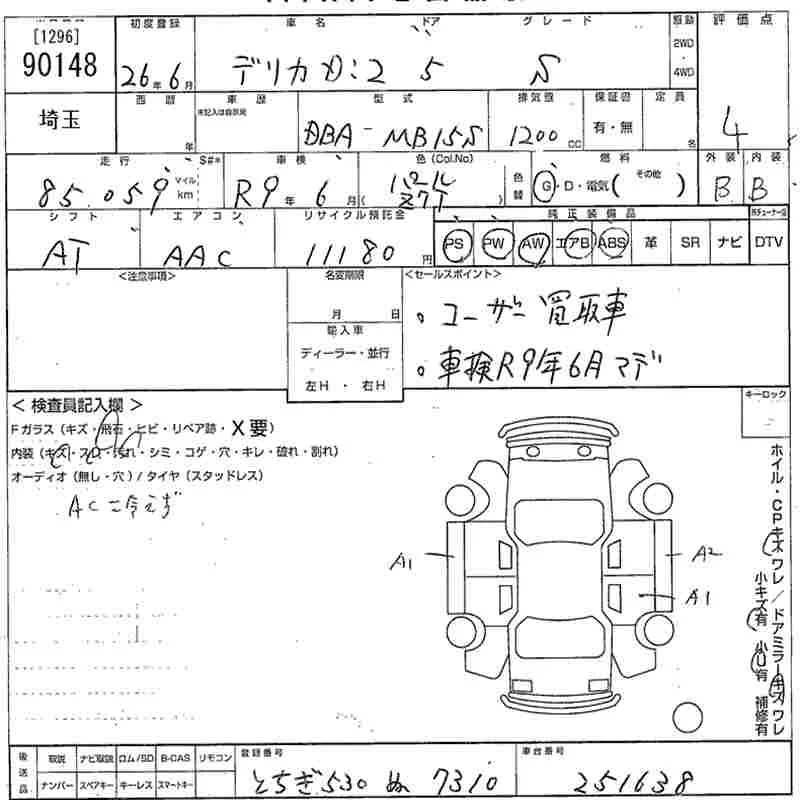 [1296]
90148
初度登録 車名 ドア グレード 駆動 評価点
26年6月 デリカD:2 5 S 2WD・4WD 4
埼玉
西暦 車歴 型式 排気量 保証書 定員
年 未記入は自家用 DBA-MB15S 1200cc 有・無 名
走行 S#* 車検 色(Col.No) 燃料 外装 内装
85,059 マイル km R9年6月 色替 G・D・電気( その他 ) B B
シフト エアコン リサイクル預託金 純正装備品
AT AAC 11180円 PS PW AW エアB ABS 革 SR ナビ DTV
<注意事項> 名変期限 <セールスポイント>
月 日 ・ユーザー買取車
輸入車
ディーラー・並行 ・車検R9年6月マデ
左H・右H
キーロック
< 検査員記入欄 >
Fガラス(キズ・飛石・ヒビ・リペア跡・X要)
内装(キズ・スレ・汚れ・シミ・コゲ・穴・キレ・破れ・割れ)
オーディオ(無し・穴)/タイヤ(スタッドレス)
AC冷えず
A1 A2
A1
ホイル・CPキズワレ/ドアミラーキズワレ
小キズ有 小U有 補修有
後送品 取説 ナビ取説 ロム/SD B-CAS リモコン 登録番号 車台番号
ナンバー スペアキー キーレス スマートキー とちぎ530 ぬ 7310 251638